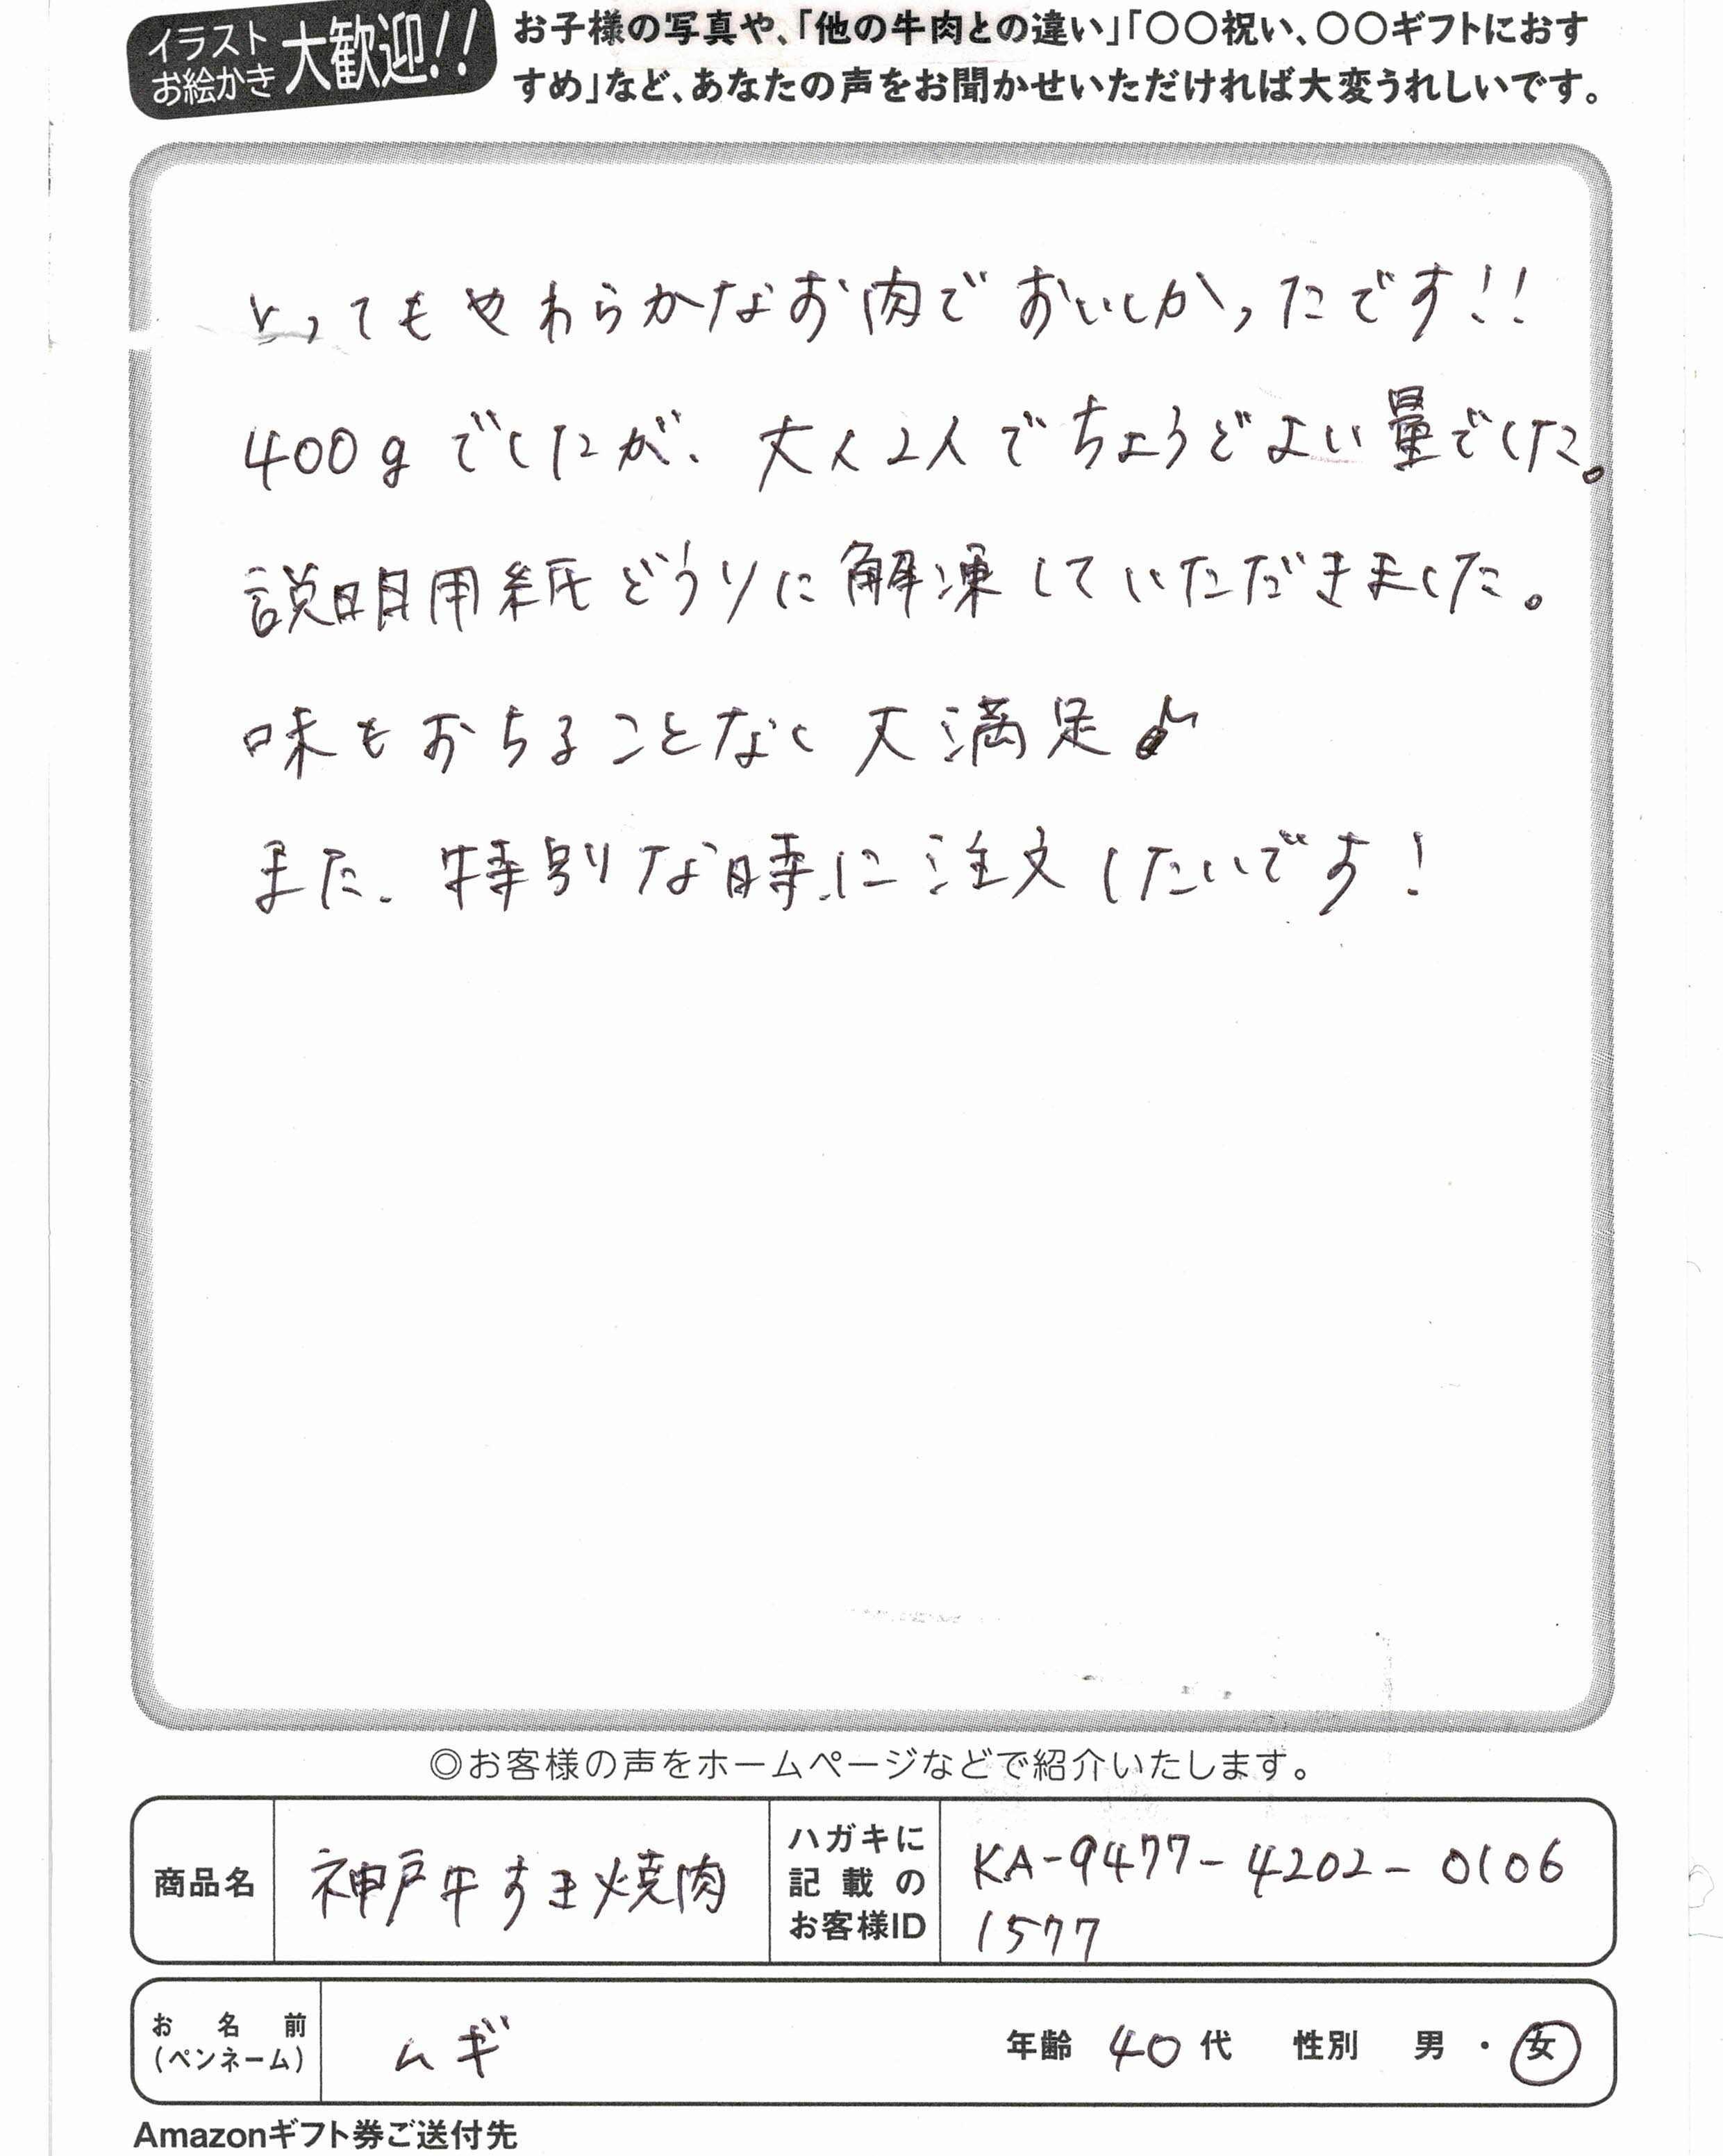 イラスト
お絵かき
大歓迎!!
お子様の写真や、「他の牛肉との違い」「〇〇祝い、〇〇ギフトにおす
すめ」など、あなたの声をお聞かせいただければ大変うれしいです。
とってもやわらかなお肉でおいしかったです!!
400gでしたが、大人2人でちょうどよい量でした。
説明用紙どうりに解凍していただきました。
味もおちることなく大満足♪
また、特別な時に注文したいです!
◎お客様の声をホームページなどで紹介いたします。
商品名
神戸牛すき焼肉
ハガキに
記載の
お客様ID
KA-9477-4202-0106
1577
お名前
(ペンネーム)
ムギ
年齢 40代 性別 男・女
Amazonギフト券ご送付先